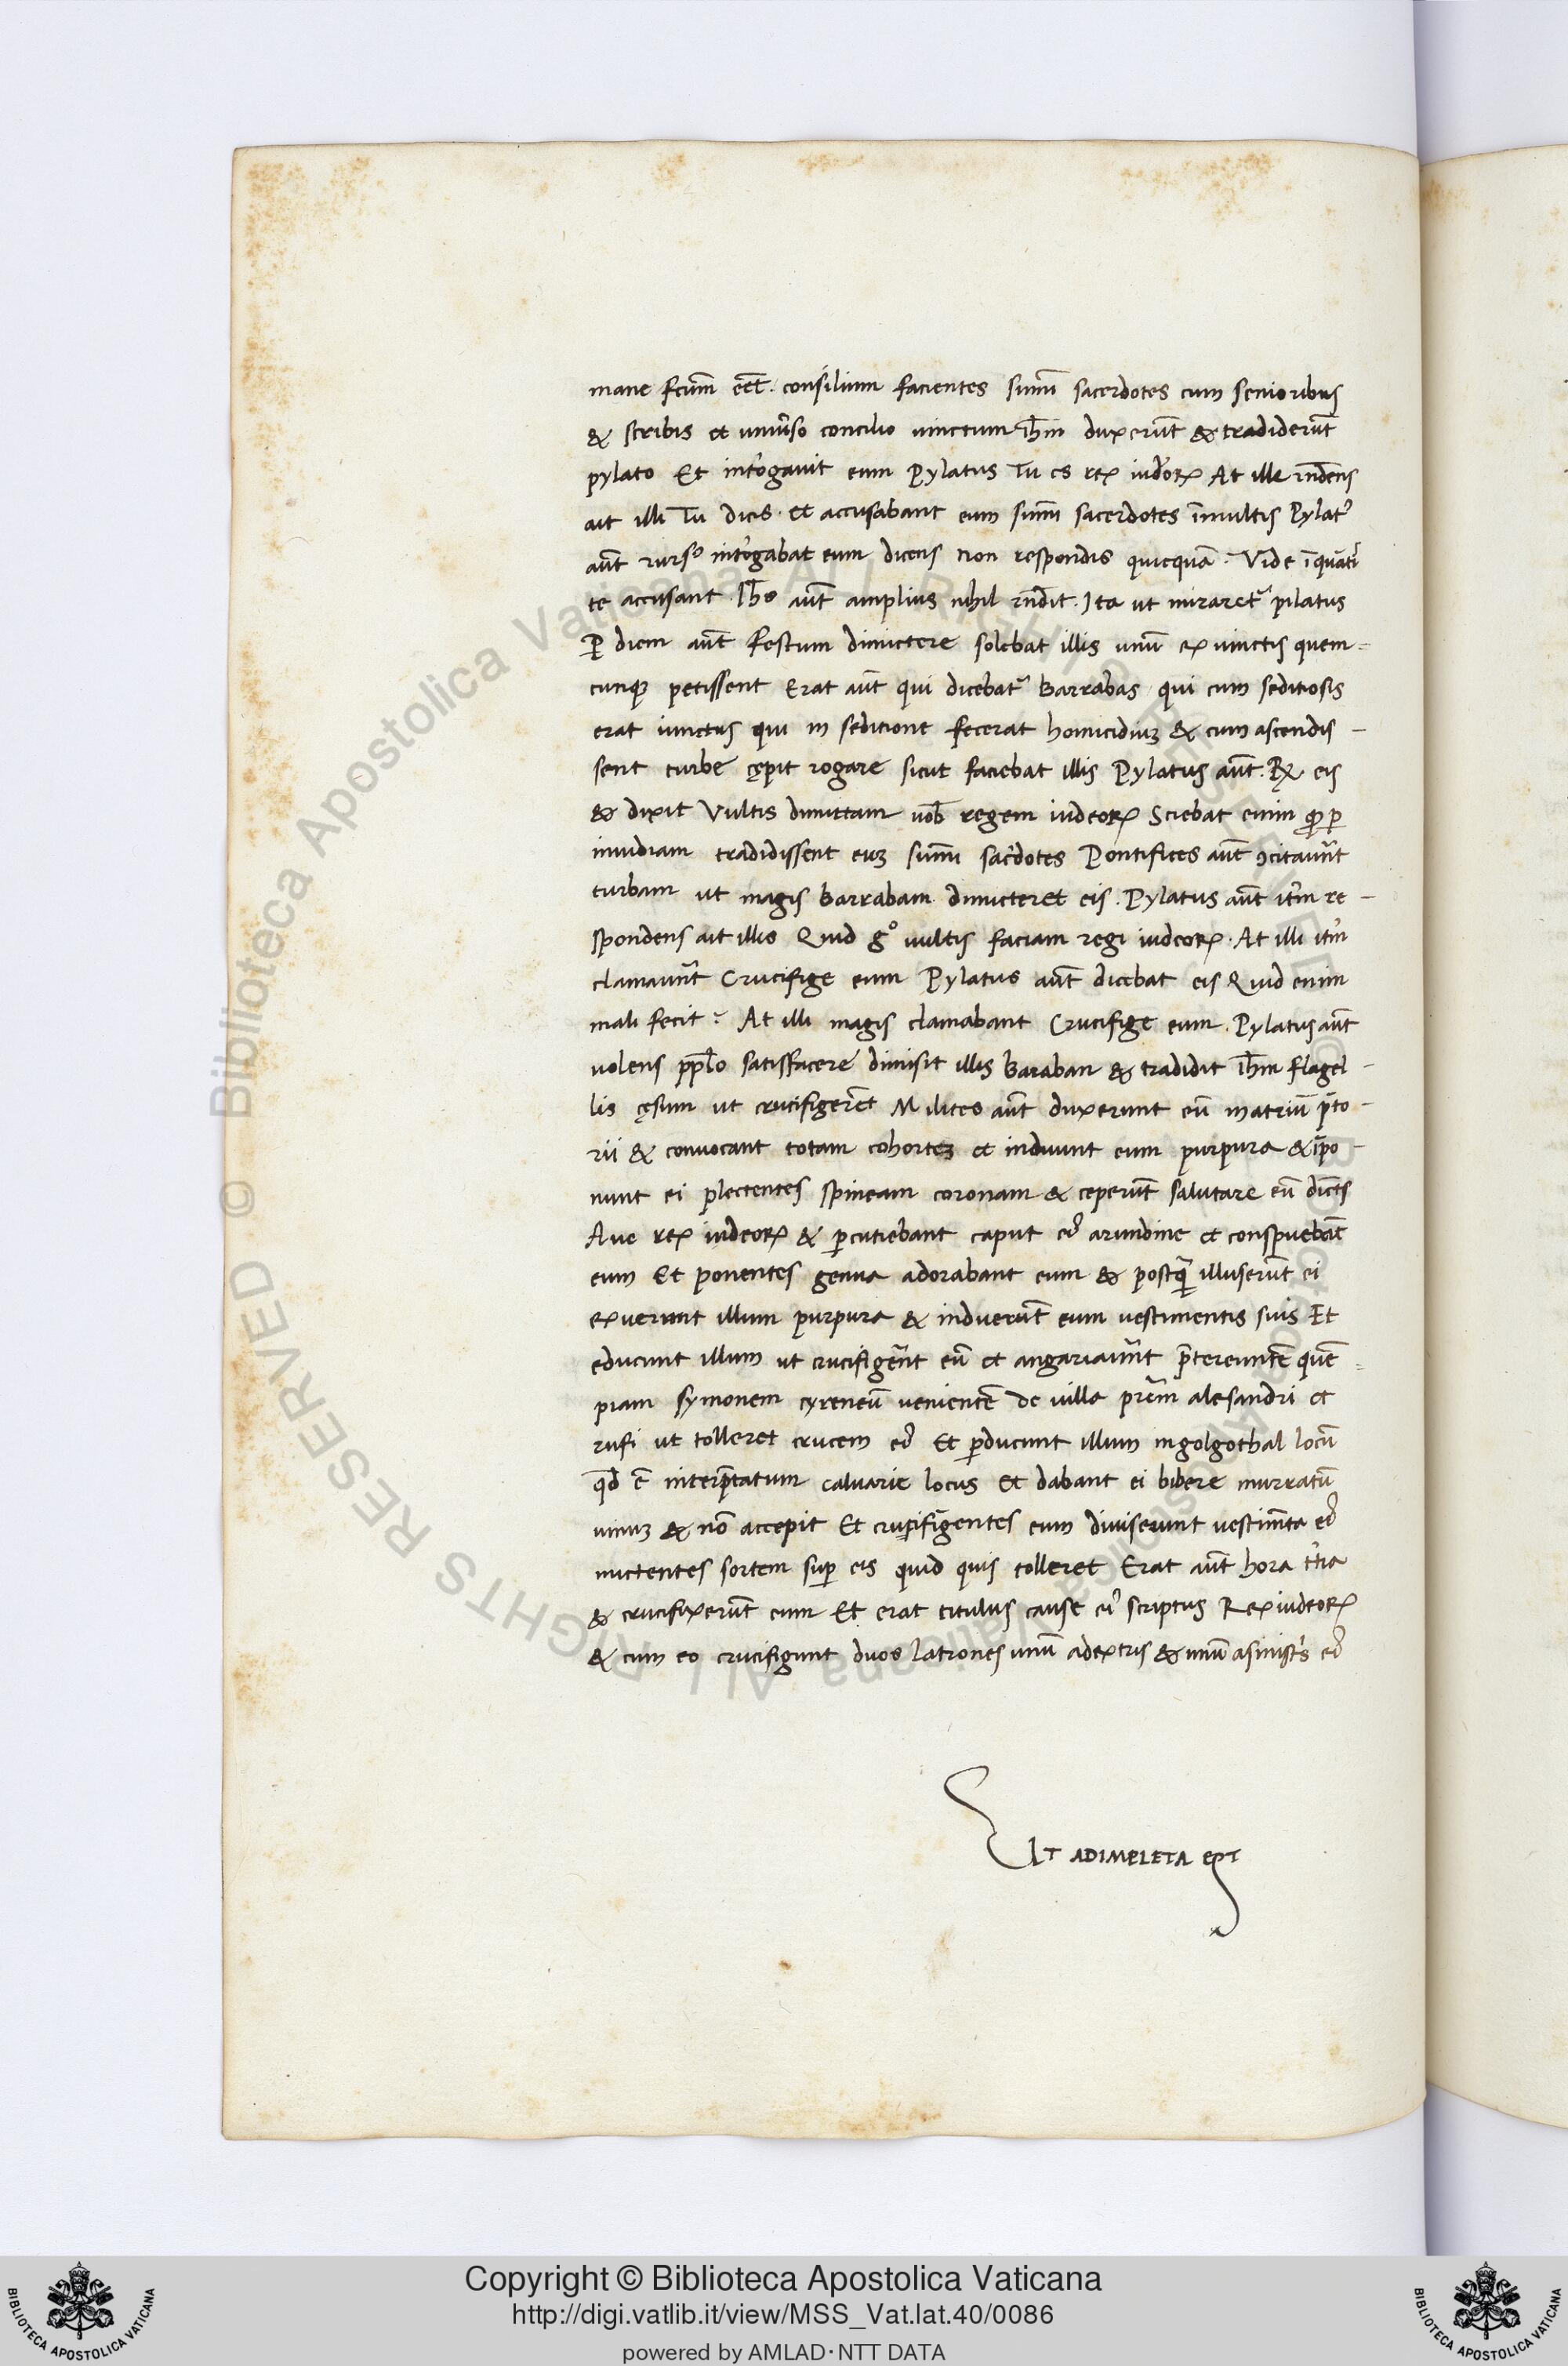 mane fcũm eēt. consilium facientes sum̃i sacerdotes cum senioribus
& scribis et uniũso concilio uinctum ih̃m duxerũt & tradiderũt
pylato Et int̃ogauit eum Pylatus Tu es rex iud̃orꝝ At ille rñdens
ait illi Tu dicis. et accusabant eum sum̃i sacerdotes ĩmultis Pylatꝰ
aũt rursꝰ int̃ogabat eum dicens non respondis quicquã. Vide ĩquãtĩ
te accusant. Ih̃s aũt amplius nihil rñdit. Ita ut miraret᷑ pilatus
ꝑ diem aũt festum dimictere solebat illis unũ ex uinctis quem=
cunqꝫ petissent Erat aũt qui dicebat᷑ Barrabas qui cum seditiosis
erat iunctus qui in seditione fecerat homicidiuꝫ & cum ascendis-
sent turbe cępit rogare sicut faciebat illis Pylatus aũt. ℞ eis
& dixit Vultis dimittam uob̃ regem iudeorꝝ Sciebat enim ꝙ ꝑ
inuidiam tradidissent euꝫ sum̃i sac̃dotes Pontifices aũt ꝯcitauer̃t
turbam ut magis barrabam dimicteret eis. Pylatus aũt it̃m re-
spondens ait illis Quid gº uultis faciam regi iudeorꝝ. At illi it̃m
clamauer̃t Crucifige eum Pylatus aũt dicebat eis Quid enim
mali fecit? At illi magis clamabant Crucifige eum. Pylatus aũt
uolens pp̃lo satisfacere dimisit illis Baraban & tradidit ih̃m flagel-
lis cęsum ut crucifiger̃et Milites aũt duxerunt eũ inatriũ p̃to-
rii & conuocant totam cohorteꝫ et induunt eum purpura & ĩpo-
nunt ei plectentes spineam coronam & ceperũt salutare eũ dicẽts
Aue rex iudeorꝝ & ꝑcutiebant caput eiꝰ arundine et conspuebãt
eum Et ponentes genua adorabant eum & postꝙ̃ illuserũt ei
exuerunt illum purpura & induerũt eum uestimentis suis Et
educunt illum ut crucifiger̃nt eũ et angariauer̃nt p̃tereuntẽ quẽ=
piam symonem cyreneũ uenientẽ de uilla pr̃em alesandri et
rufi ut tolleret crucem eiꝰ Et ꝑducunt illum ingolgothal locũ
qd̃ ẽ interp̃tatum caluarie locus Et dabant ei bibere murratũ
uinuꝫ & nõ accepit Et crucifigentes eum diuiserunt uestimẽta eiꝰ
mictentes sortem suꝑ eis quid quis tolleret Erat aũt hora t̃tia
& crucifixerũt eum Et erat titulus cause eiꝰ scriptus Rex iudeorꝝ
& cum eo crucifigunt duos latrones unũ adextris & unũ asinist̃s eiꝰ
Copyright © Biblioteca Apostolica Vaticana
http://digi.vatlib.it/view/MSS_Vat.lat.40/0086
powered by AMLAD·NTT DATA